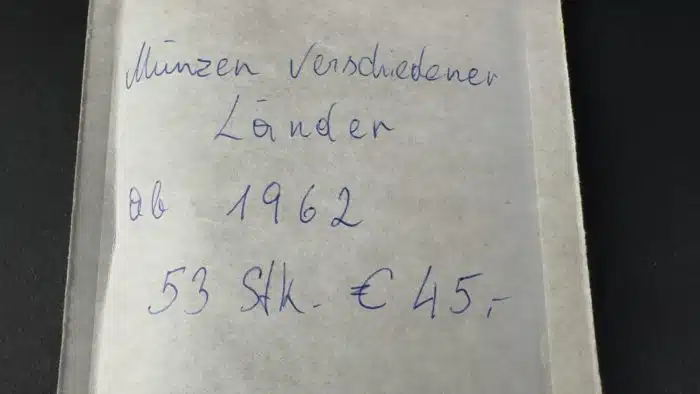 Münzen verschiedener
Länder
ab 1962
53 Stk. € 45,-